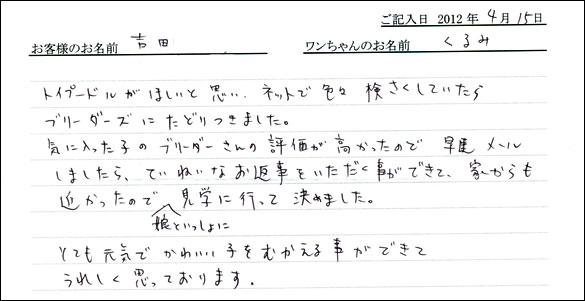 ご記入日 2012年4月15日
お客様のお名前 吉田 ワンちゃんのお名前 くるみ
トイプードルがほしいと思い、ネットで色々 検さくしていたら
ブリーダーズにたどりつきました。
気に入った子のブリーダーさんの評価が高かったので 早速メール
しましたら、ていねいなお返事をいただく事ができて、家からも
近かったので 見学に行って 決めました。
娘といっしょに
とても元気で かわいい子をむかえる事ができて
うれしく思っております。